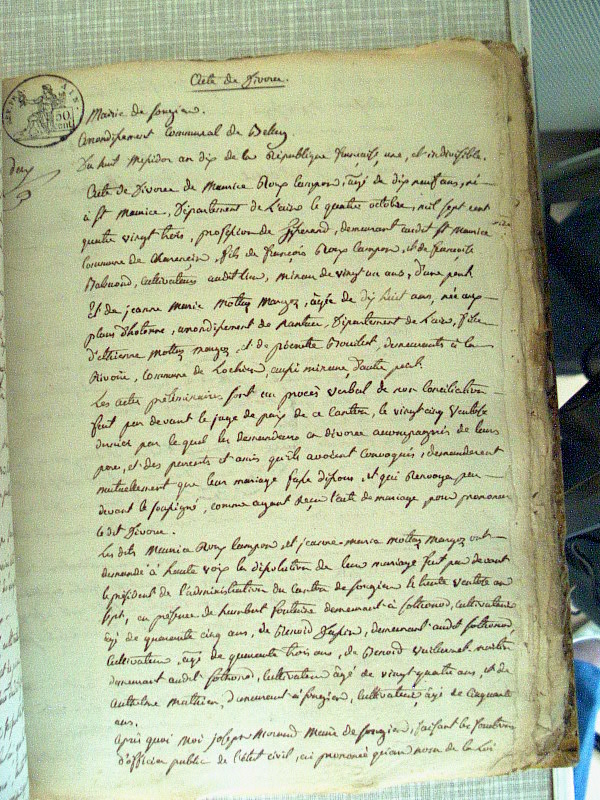 Acte de Divorce.
50
cent.
Mairie de Songieu.
Arrondissement Communal de Belley
Du huit Messidor an dix de la République française, une, et indivisible.
Acte de Divorce de Maurice Roux Lampon, âgé de dix neuf ans, né
à St Maurice, Département de L'ain le quatre octobre, mil sept cent
quatre vingt trois, profession de demeurant audit St Maurice
Commune de Charencin, fils de françois Roux Lampon, et de françoise
cultivateurs audit lieu, mineur de vingt un ans, d'une part
Et de jeanne Marie Mollex Margoz, âgée de dix huit ans, née aux
plans d'hotonne, arrondissement de Nantua, Département de L'ain, fille
d'ethienne Mollex Margoz, et de pierrette demeurants à la
Rivoire, Commune de Lochieu, aussi mineure, d'autre part.
Les actes préliminaires sont un procès verbal de non conciliation
fait par devant le juge de paix de ce canton, le vingt cinq Ventôse
dernier par le quel les demandeurs en divorce accompagnés de leurs
pere, et des parents et amis qu'ils avoient convoqués, demanderent
mutuellement que leur mariage fusse dissous, et qui Renvoya par
devant le soussigné, comme ayant Reçu l'acte de mariage, pour prononcer
le dit Divorce.
Les dits Maurice Roux Lampon, et jeanne-marie mollex Margoz ont
demandé à haute voix la dissolution de leur mariage fait par devant
le président de l'administration du Canton de Songieu le trente Ventôse an
sept, en présence de humbert demeurant à Sothonod, cultivateur
âgé de quarante cinq ans, de Benoid demeurant audit Sothonod
Cultivateur, âgé de quarante trois ans, de Benoid Vuillerme
demeurant audit Sothonod, Cultivateur âgé de vingt quatre ans, et de
Anthelme Mathieu, demeurant à Songieu, Cultivateur, âgé de Cinquante
ans.
Après quoi Moi joseph Morand Maire de Songieu, faisant les fonctions
d'officier public de l'état civil, ai prononcé qu'au nom de la Loi